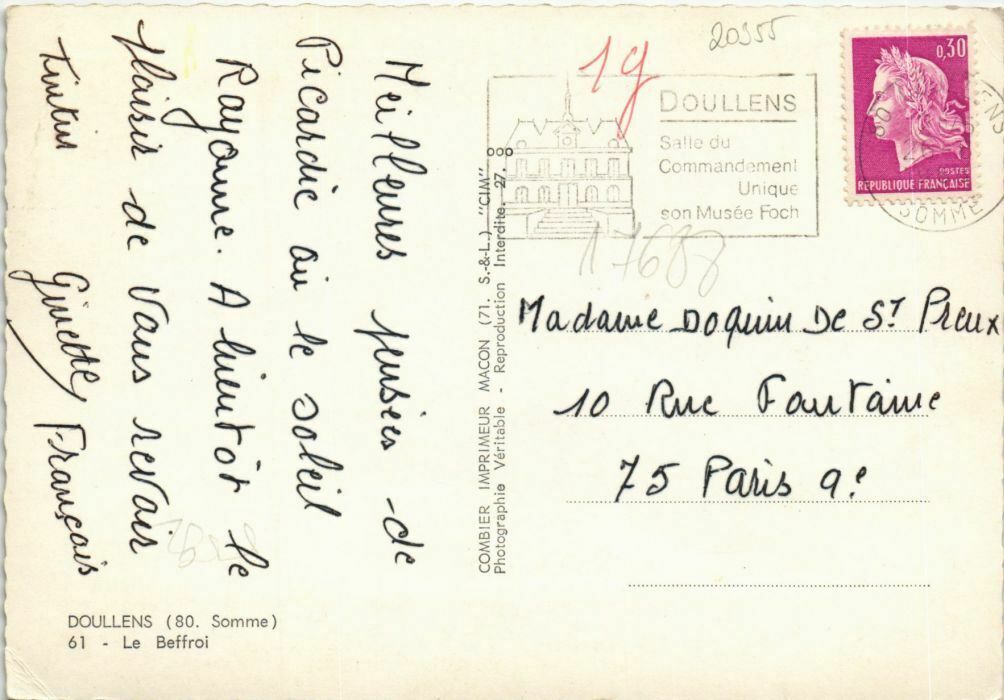 Meilleures pensées de
Picardie où le soleil
Rayonne. A bientôt le
Plaisir de Vous revoir
Tintin Ginette François
DOULLENS (80. Somme)
61 - Le Beffroi
COMBIER IMPRIMEUR MACON (71. S.-&-L.) "CIM"
Photographie Véritable - Reproduction Interdite. 27.
20355
19
DOULLENS
Salle du
Commandement
Unique
son Musée Foch
0,30
POSTES
REPUBLIQUE FRANÇAISE
SOMME
17688
Madame Doquin De St Preux
10 Rue Fontaine
75 Paris 9e